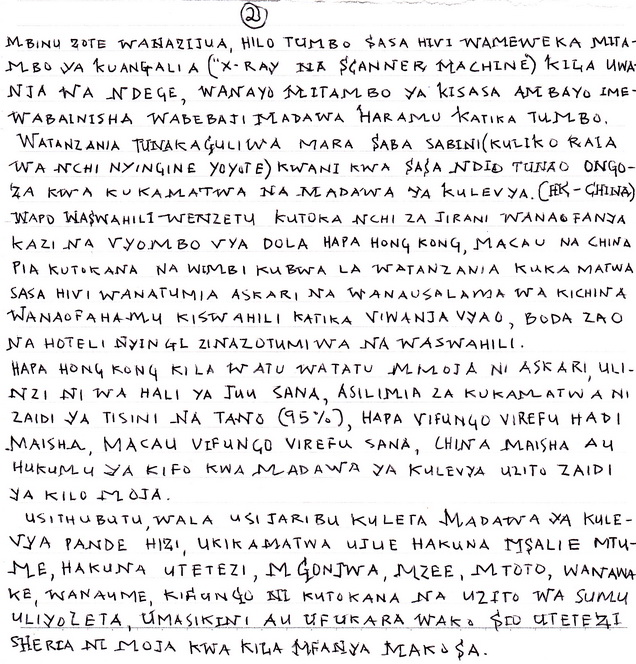 2
MBINU ZOTE WANAZIJUA, HILO TUMBO SASA HIVI WAMEWEKA MITA-
MBO YA KUANGALIA ("X-RAY NA SCANNER MACHINE) KILA UWA-
NJA WA NDEGE, WANAYO MITAMBO YA KISASA AMBAYO IME-
WABAINISHA WABEBAJI MADAWA HARAMU KATIKA TUMBO.
WATANZANIA TUNAKAGULIWA MARA SABA SABINI (KULIKO RAIA
WA NCHI NYINGINE YOYOTE) KWANI KWA SASA NDIO TUNAO ONGO-
ZA KWA KUKAMATWA NA MADAWA YA KULEVYA. (HK-CHINA)
WAPO WASWAHILI WENZETU KUTOKA NCHI ZA JIRANI WANAOFANYA
KAZI NA VYOMBO VYA DOLA HAPA HONG KONG, MACAU NA CHINA
PIA KUTOKANA NA WIMBI KUBWA LA WATANZANIA KUKAMATWA
SASA HIVI WANATUMIA ASKARI NA WANAUSALAMA WA KICHINA
WANAOFAHAMU KISWAHILI KATIKA VIWANJA VYAO, BODA ZAO
NA HOTELI NYINGI ZINAZOTUMIWA NA WASWAHILI.
HAPA HONG KONG KILA WATU WATATU MMOJA NI ASKARI, ULI-
NZI NI WA HALI YA JUU SANA, ASILIMIA ZA KUKAMATWA NI
ZAIDI YA TISINI NA TANO (95%), HAPA VIFUNGO VIREFU HADI
MAISHA, MACAU VIFUNGO VIREFU SANA, CHINA MAISHA AU
HUKUMU YA KIFO KWA MADAWA YA KULEVYA UZITO ZAIDI
YA KILO MOJA.
USITHUBUTU, WALA USIJARIBU KULETA MADAWA YA KULE-
VYA PANDE HIZI, UKIKAMATWA UJUE HAKUNA MSALIE MTU-
ME, HAKUNA UTETEZI, MGONJWA, MZEE, MTOTO, WANAWA
KE, WANAUME, KIFUNGO NI KUTOKANA NA UZITO WA SUMU
ULIYOLETA, UMASIKINI AU UFUKARA WAKO SIO UTETEZI
SHERIA NI MOJA KWA KILA MFANYA MAKOSA.